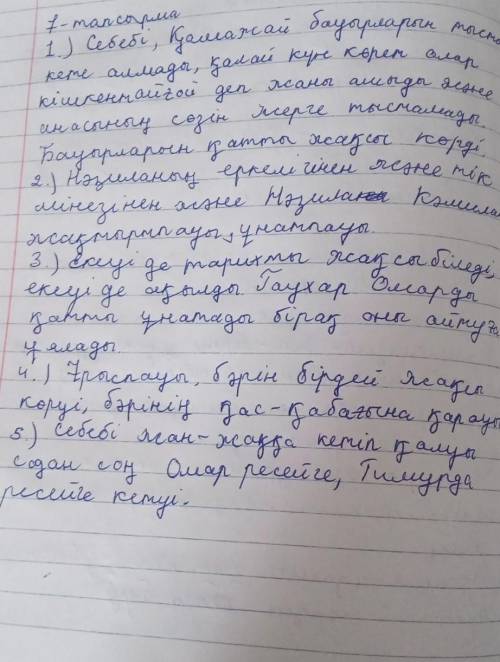 7-тапсырма
1.) Себебі, Қамажай бауырларын тыста
кете алмады, қалай күн көреп алар
кішкентайғой деп жаны ашыды және
анасының сөзін жерге тыстамады.
Бауырларын қатты жақсы көрді.
2.) Нәзиланың еркелігінен және тік
мінезінен және Нәзила Кәмила
жақтырмпауы, ұнатпауы.
3.) екеуі де тарихты жақсы біледі,
екеуі де ақылды. Гаухар Омарды
қатты ұнатады бірақ оны айтуға
ұялады.
4.) Ұрыспауы, бәрін бірдей жақсы
көруі, бәрінің қас-қабағына қарауы
5.) Себебі жан-жаққа кетіп қалуы
содан соң Омар ресейге, Тимурда
ресейге кетуі.